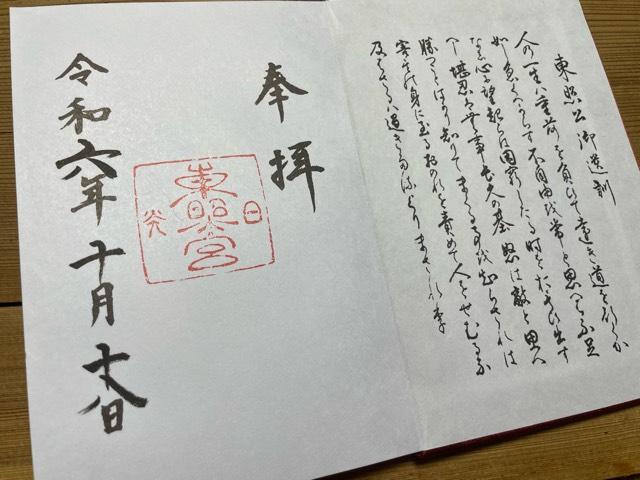 東照公御遺訓
人の一生ハ重荷を負ひて遠き道を行くか
如し急くへからす不自由を常と思へハ不足
なし心に望起らは困窮したる時を思ひ出す
へし堪忍は無事長久の基怒は敵と思へ
勝つことはかり知りてまくる事を知らされは
害其身に至るおのれを責めて人をせむるな
及はさるハ過きたるよりまされり
奉拝
日
東照宮
光
令和六年十月十八日